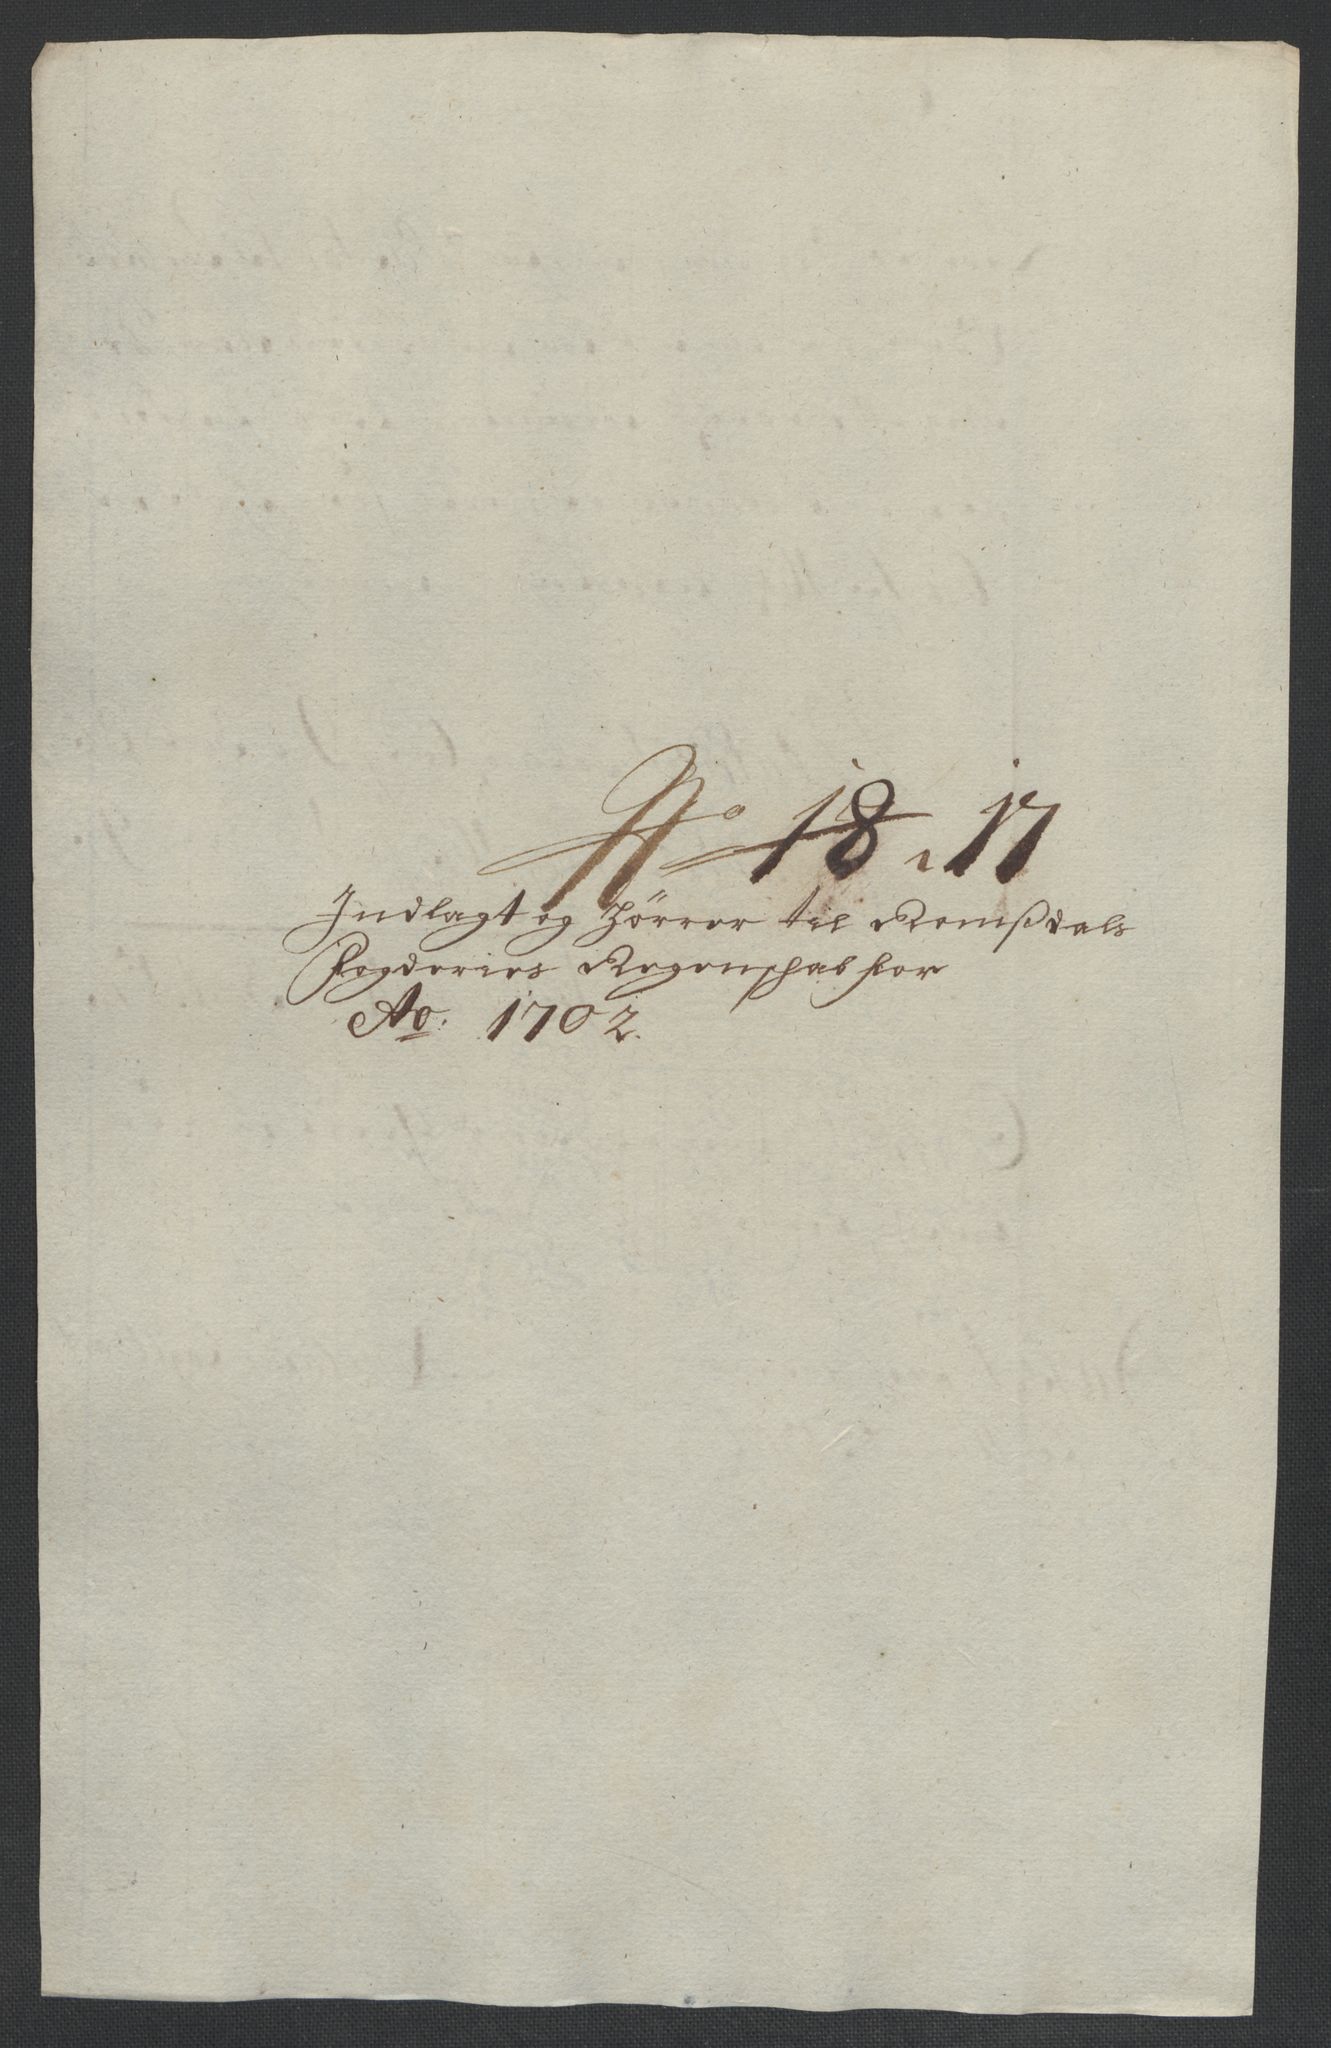 No 18. 17
Indlagt og hörrer til Romßdals
Fogderies Regenschab for
Ao: 1702.